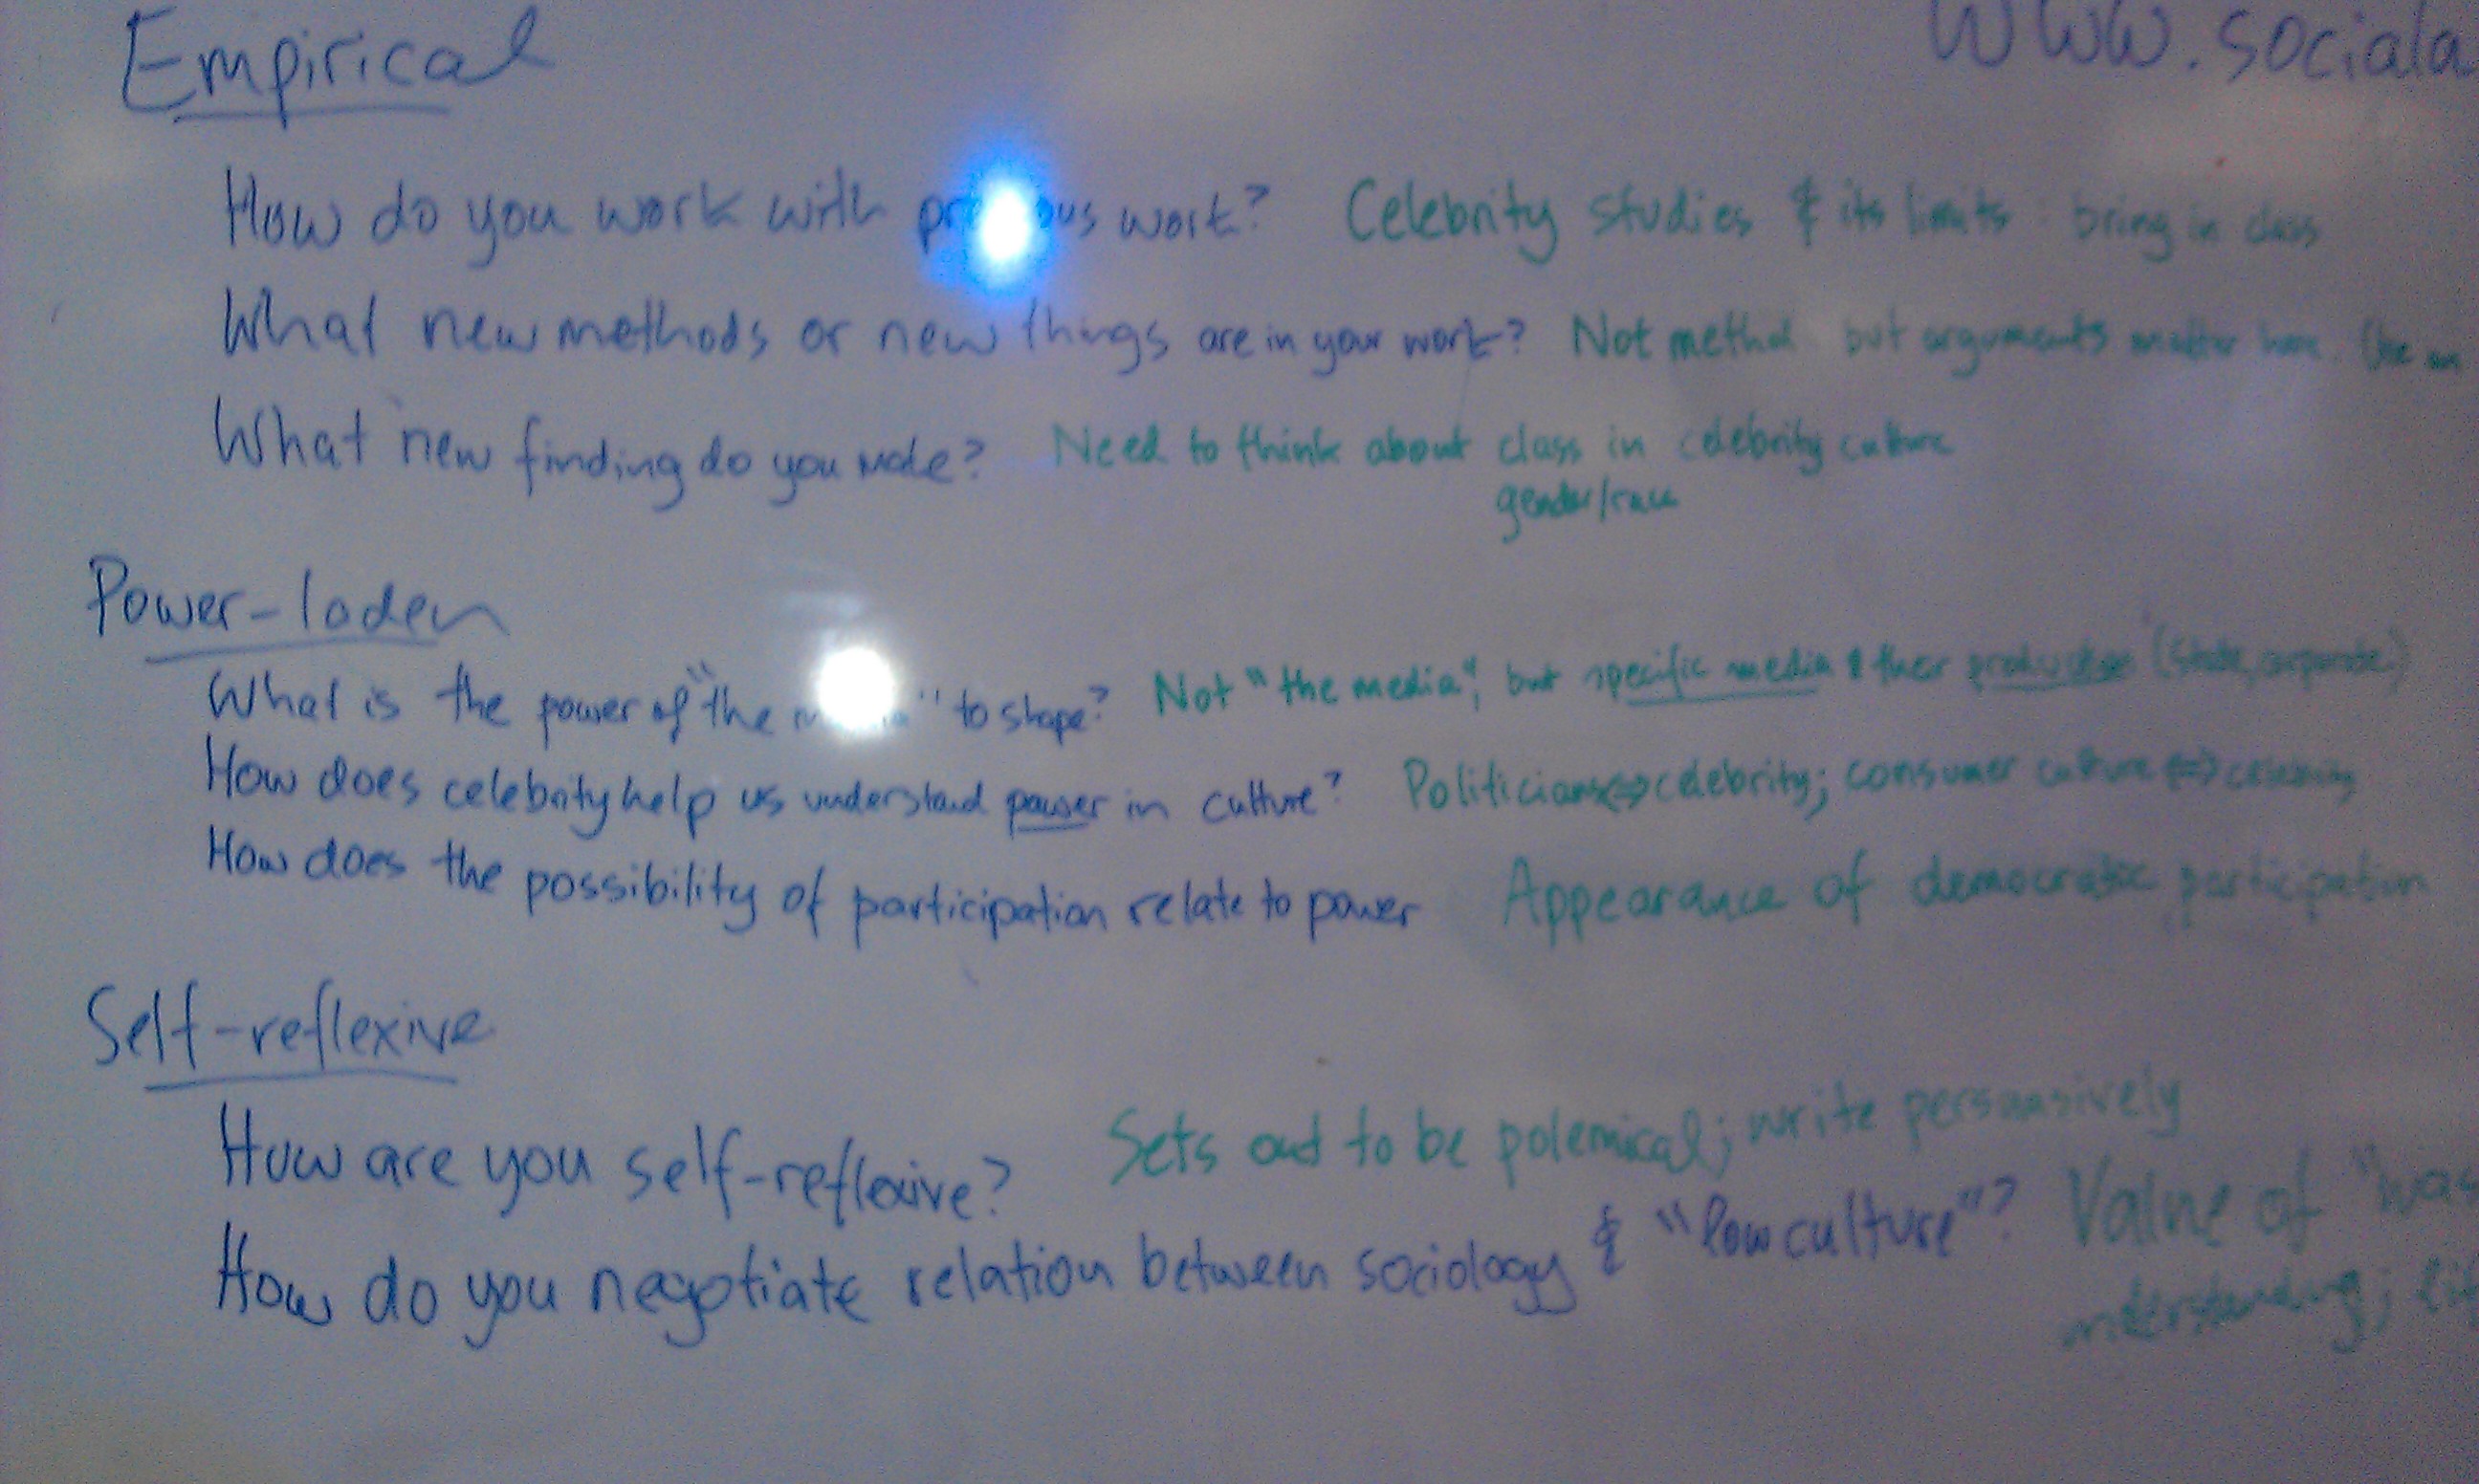 Empirical
www.sociala
How do you work with work? Celebrity studies & its limits : bring in class
What new methods or new things are in your work? Not method but arguments matter here
What new finding do you make? Need to think about class in celebrity culture
gender/race
Power-laden
What is the power of "the " to shape? Not "the media", but specific media & their production (state, corporate)
How does celebrity help us understand power in culture? Politicians⇔celebrity; consumer culture⇔celebrity
How does the possibility of participation relate to power Appearance of democratic participation
Self-reflexive
How are you self-reflexive? Sets out to be polemical; write persuasively
How do you negotiate relation between sociology & "low culture"? Value of
understanding;